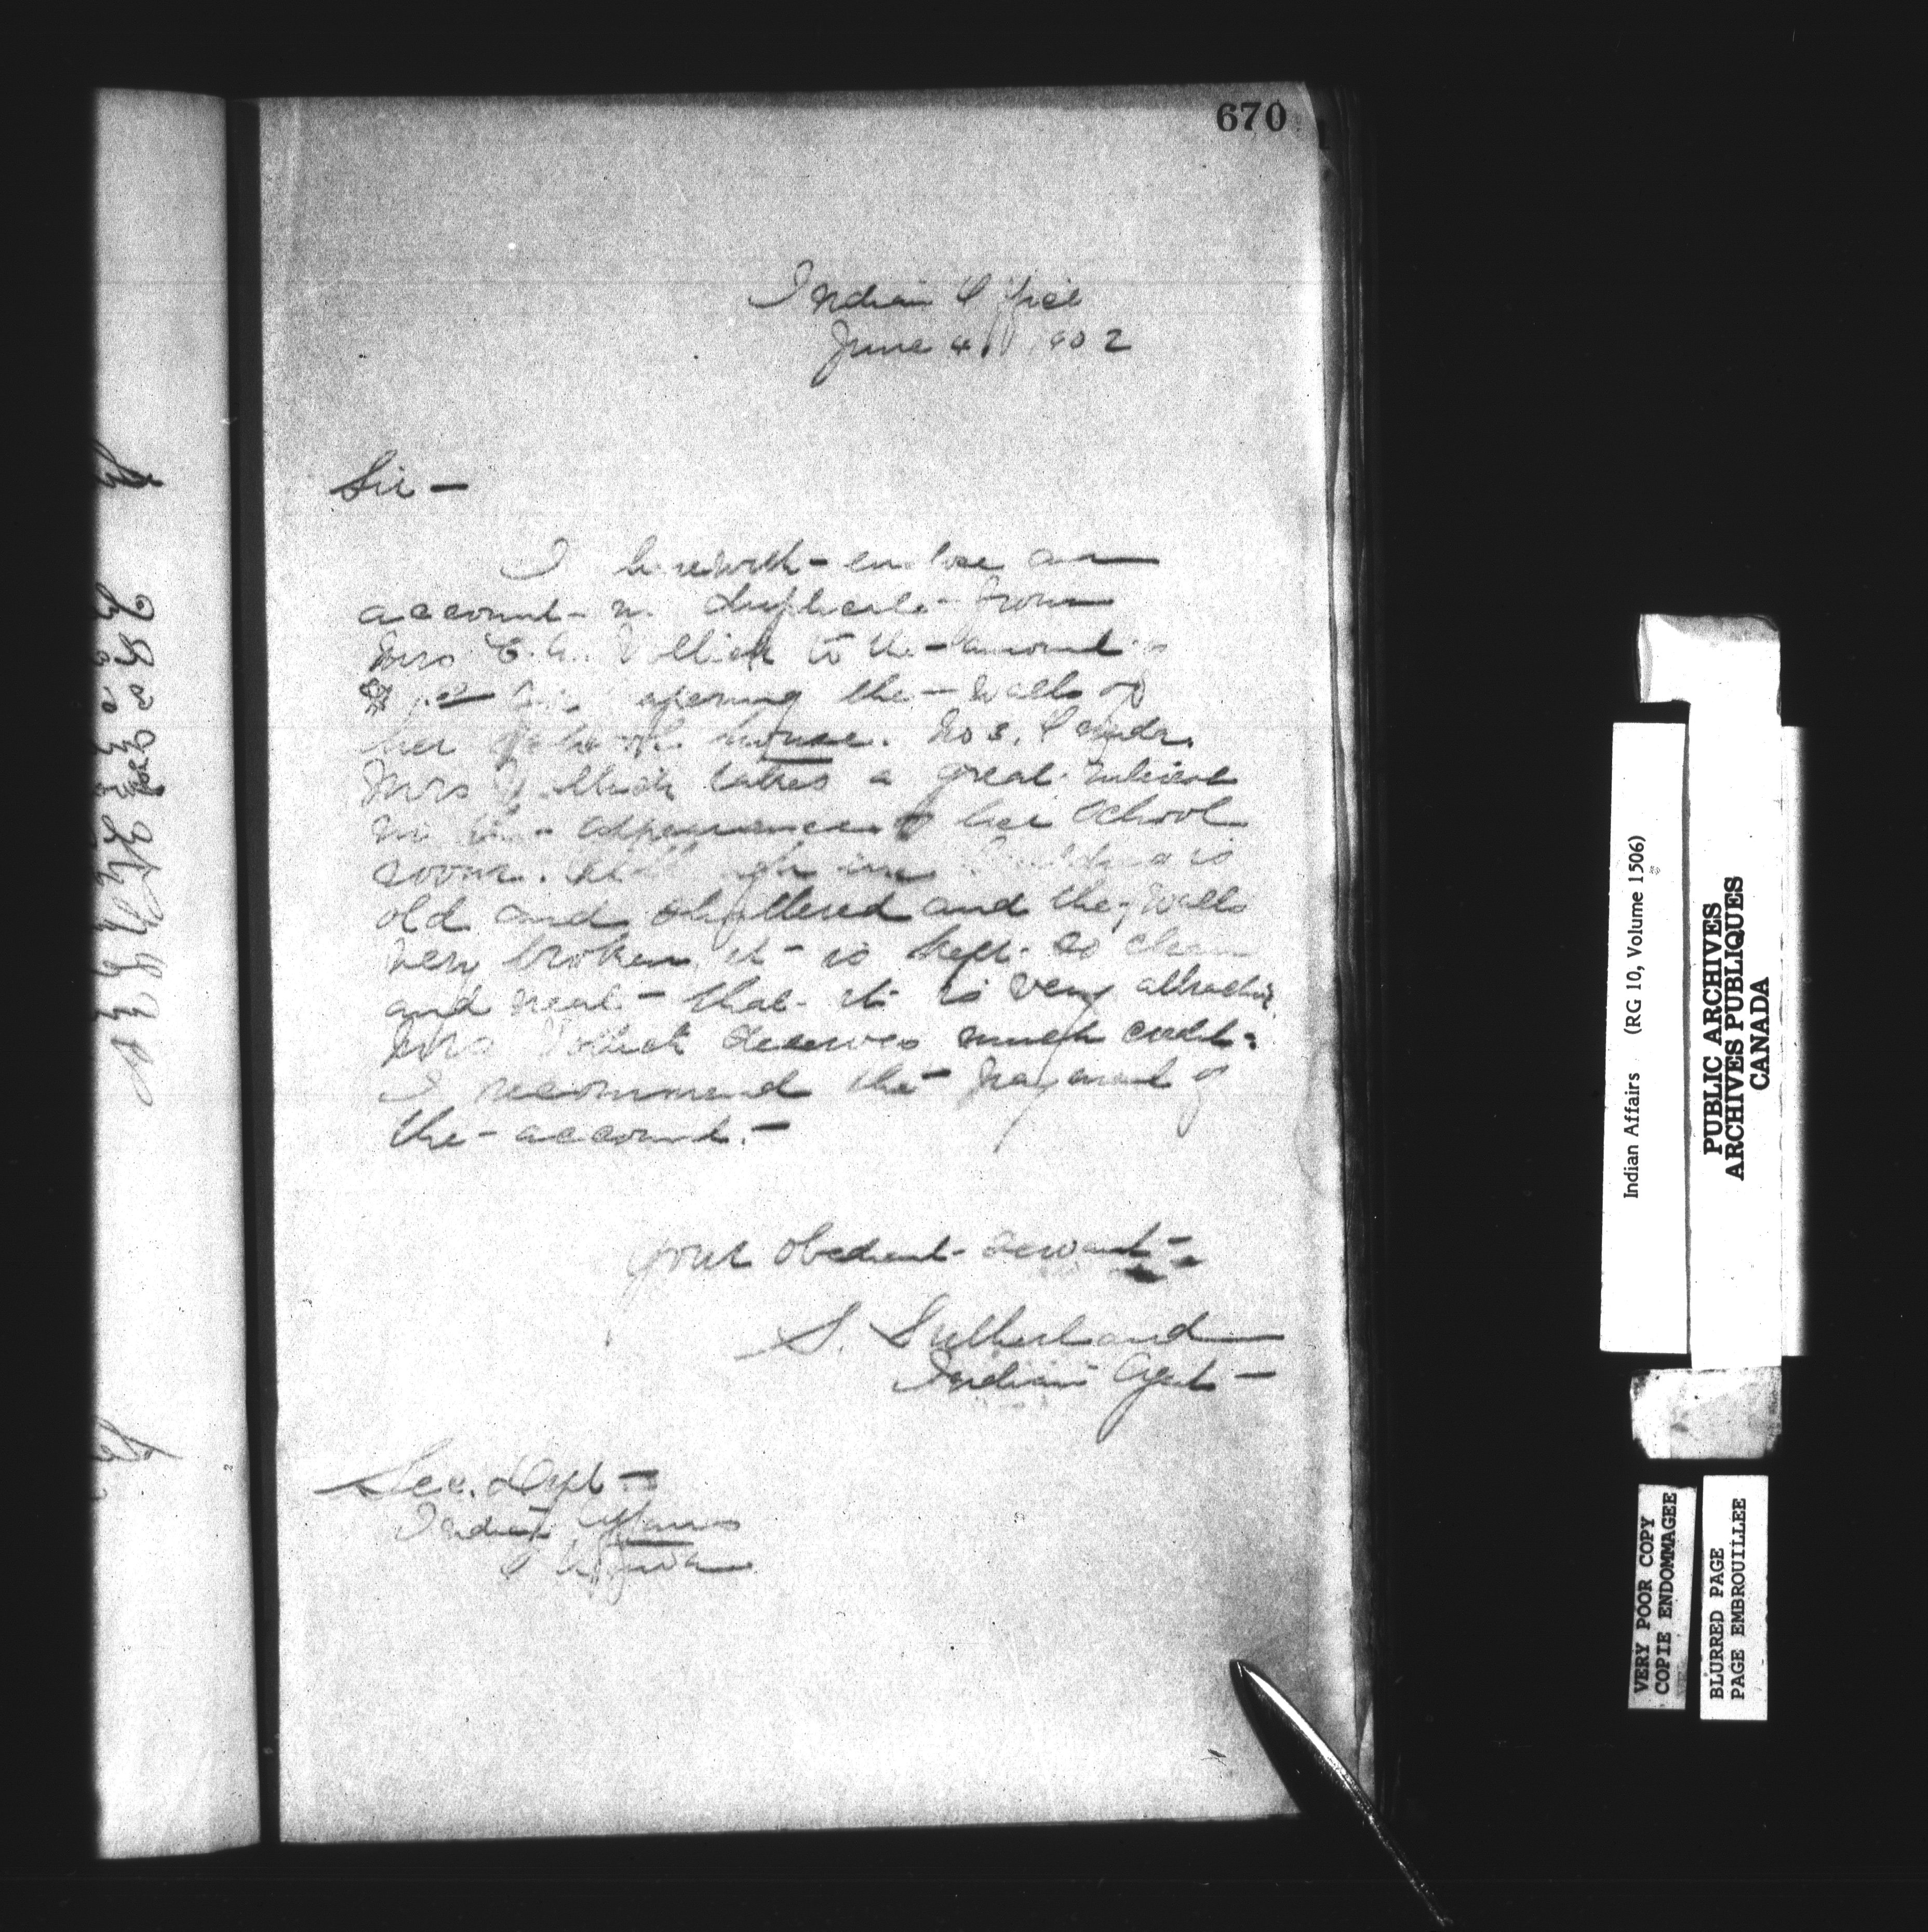 670
Indian Office
June 4, 1902
Sir —
I herewith enclose an
account in duplicate from
Mrs E. A. Vollick to the amount of
papering the walls of
her school house. No 3, Oneida.
Mrs Vollick takes a great interest
in the appearance of her school
room. Although the building is
old and shattered and the walls
very broken it is kept so clean
and neat that it is very attractive.
Mrs Vollick deserves much credit.
I recommend the payment of
the account. —
Your obedient servant
S. Sutherland
Indian Agent —
Sec. Dept —
Indian Affairs
Ottawa
Indian Affairs (RG 10, Volume 1506)
PUBLIC ARCHIVES
ARCHIVES PUBLIQUES
CANADA
VERY POOR COPY
COPIE ENDOMMAGEE
BLURRED PAGE
PAGE EMBROUILLEE